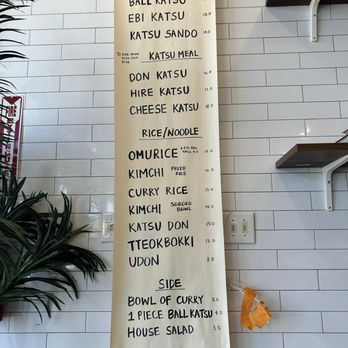 BALL KATSU
EBI KATSU
KATSU SANDO
KATSU MEAL
DON KATSU
HIRE KATSU
CHEESE KATSU
RICE/NOODLE
OMURICE 13.0
KIMCHI FRIED RICE
CURRY RICE
KIMCHI SOBORO BOWL
KATSU DON 15.0
TTEOKBOKKI 12.0
UDON
SIDE
BOWL OF CURRY 5.0
1 PIECE BALLKATSU 4.0
HOUSE SALAD 3.5